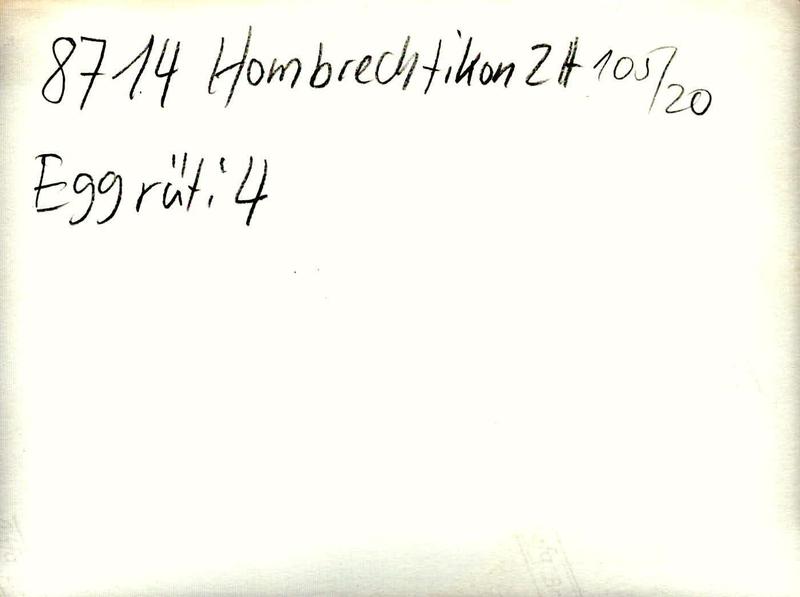 8714 Hombrechtikon ZH 105/20
Eggrüti 4